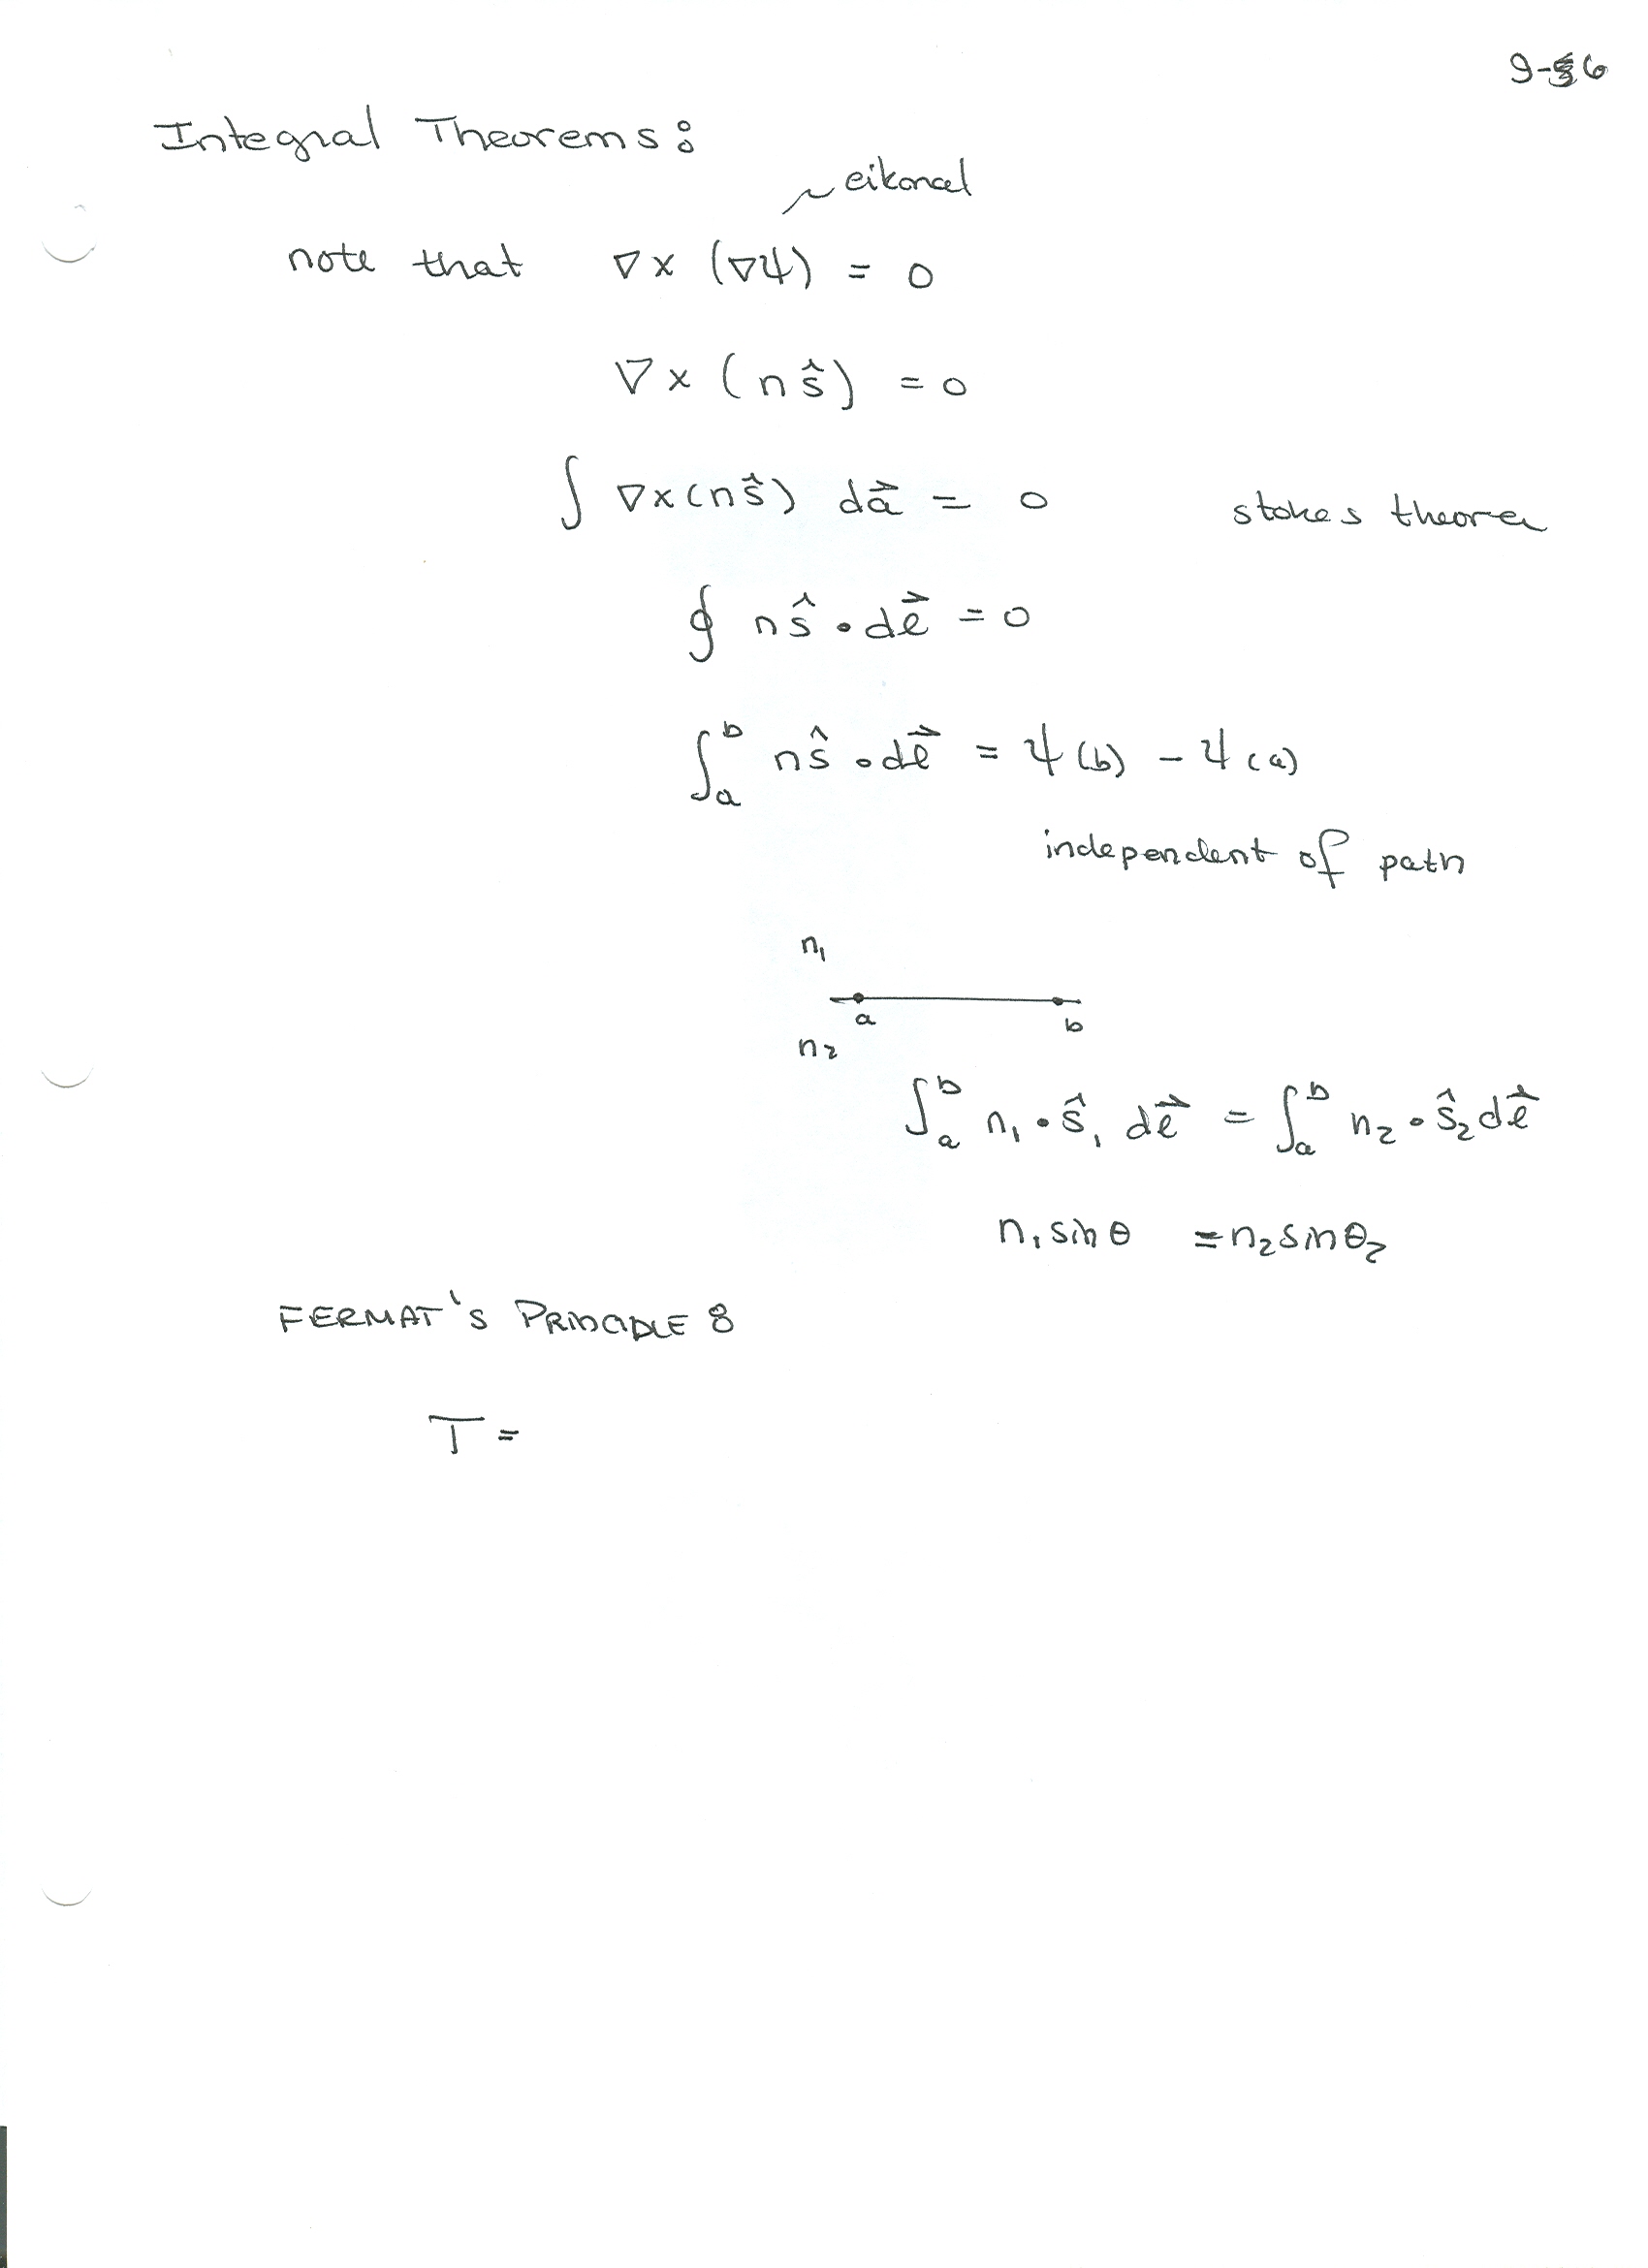 9-6
Integral Theorems:
eikonal
note that ∇ × (∇ψ) = 0
∇ × (n ŝ) = 0
∫ ∇×(nŝ) da⃗ = 0 stokes theorem
∮ nŝ · dℓ⃗ = 0
∫ₐᵇ nŝ · dℓ⃗ = ψ(b) - ψ(a)
independent of path
n₁
a b
n₂
∫ₐᵇ n₁ · ŝ₁ dℓ⃗ = ∫ₐᵇ n₂ · ŝ₂ dℓ⃗
n₁ sin θ = n₂ sin θ₂
FERMAT'S PRINCIPLE :
T =